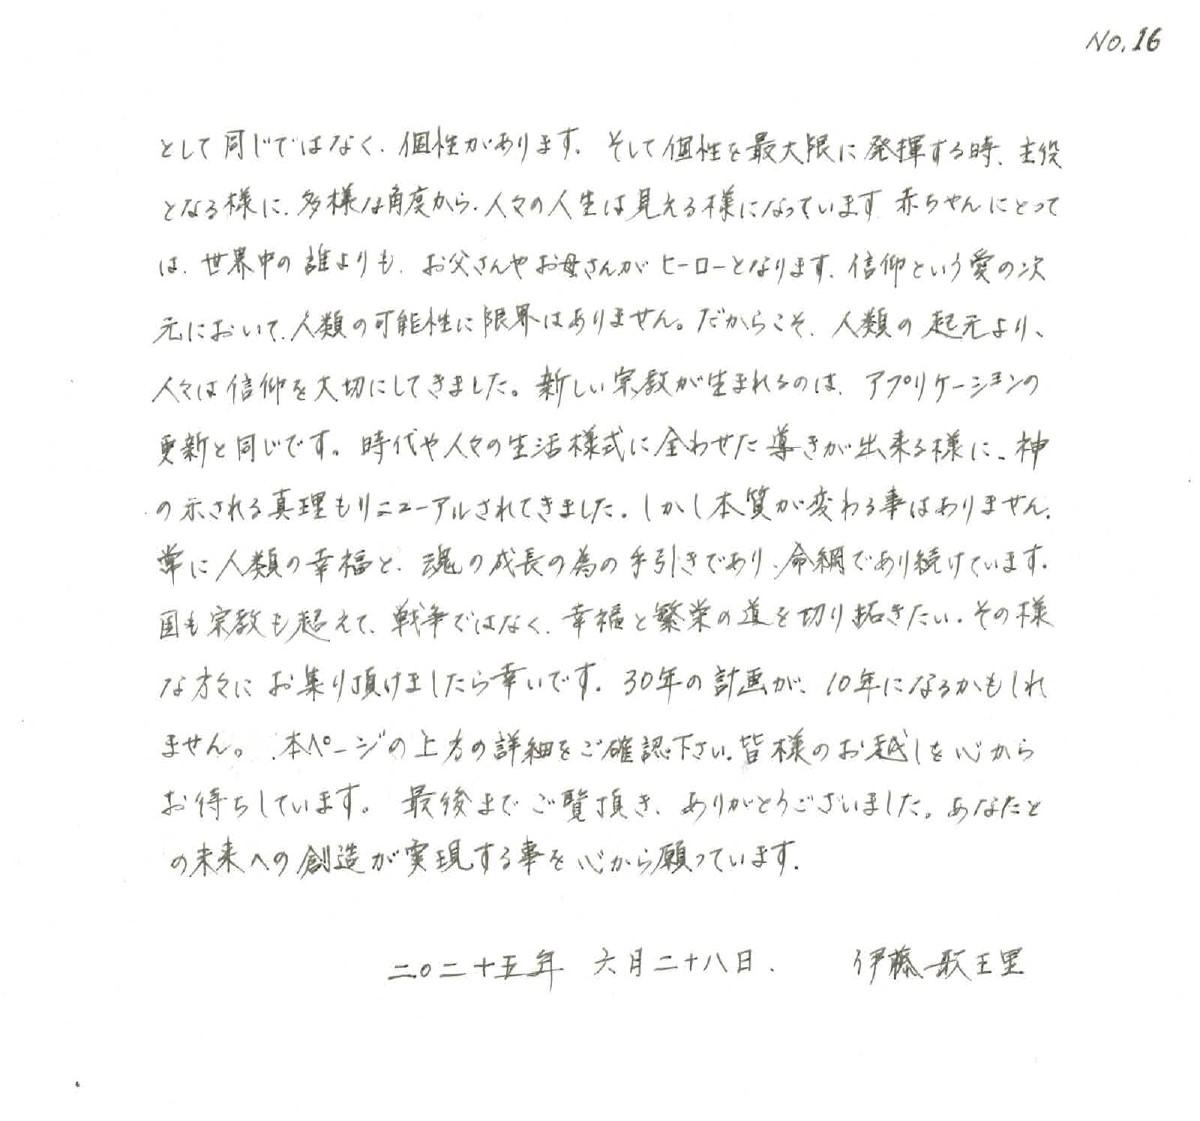 No.16
として同じではなく、個性があります。そして個性を最大限に発揮する時、主役
となる様に、多様な角度から、人々の人生は見える様になっています 赤ちゃんにとって
は、世界中の誰よりも、お父さんやお母さんがヒーローとなります。信仰という愛の次
元において、人類の可能性に限界はありません。だからこそ、人類の起元より、
人々は信仰を大切にしてきました。新しい宗教が生まれるのは、アプリケーションの
更新と同じです。時代や人々の生活様式に合わせた導きが出来る様に、神
の示される真理もリニューアルされてきました。しかし本質が変わる事はありません。
常に人類の幸福と、魂の成長の為の手引きであり、命綱であり続けています。
国も宗教も超えて、戦争ではなく、幸福と繁栄の道を切り拓きたい。その様
な方々にお集り頂けましたら幸いです。30年の計画が、10年になるかもしれ
ません。本ページの上方の詳細をご確認下さい。皆様のお越しを心から
お待ちしています。最後までご覧頂き、ありがとうございました。あなたと
の未来への創造が実現する事を心から願っています。
二〇二十五年 六月二十八日. 伊藤歌王里